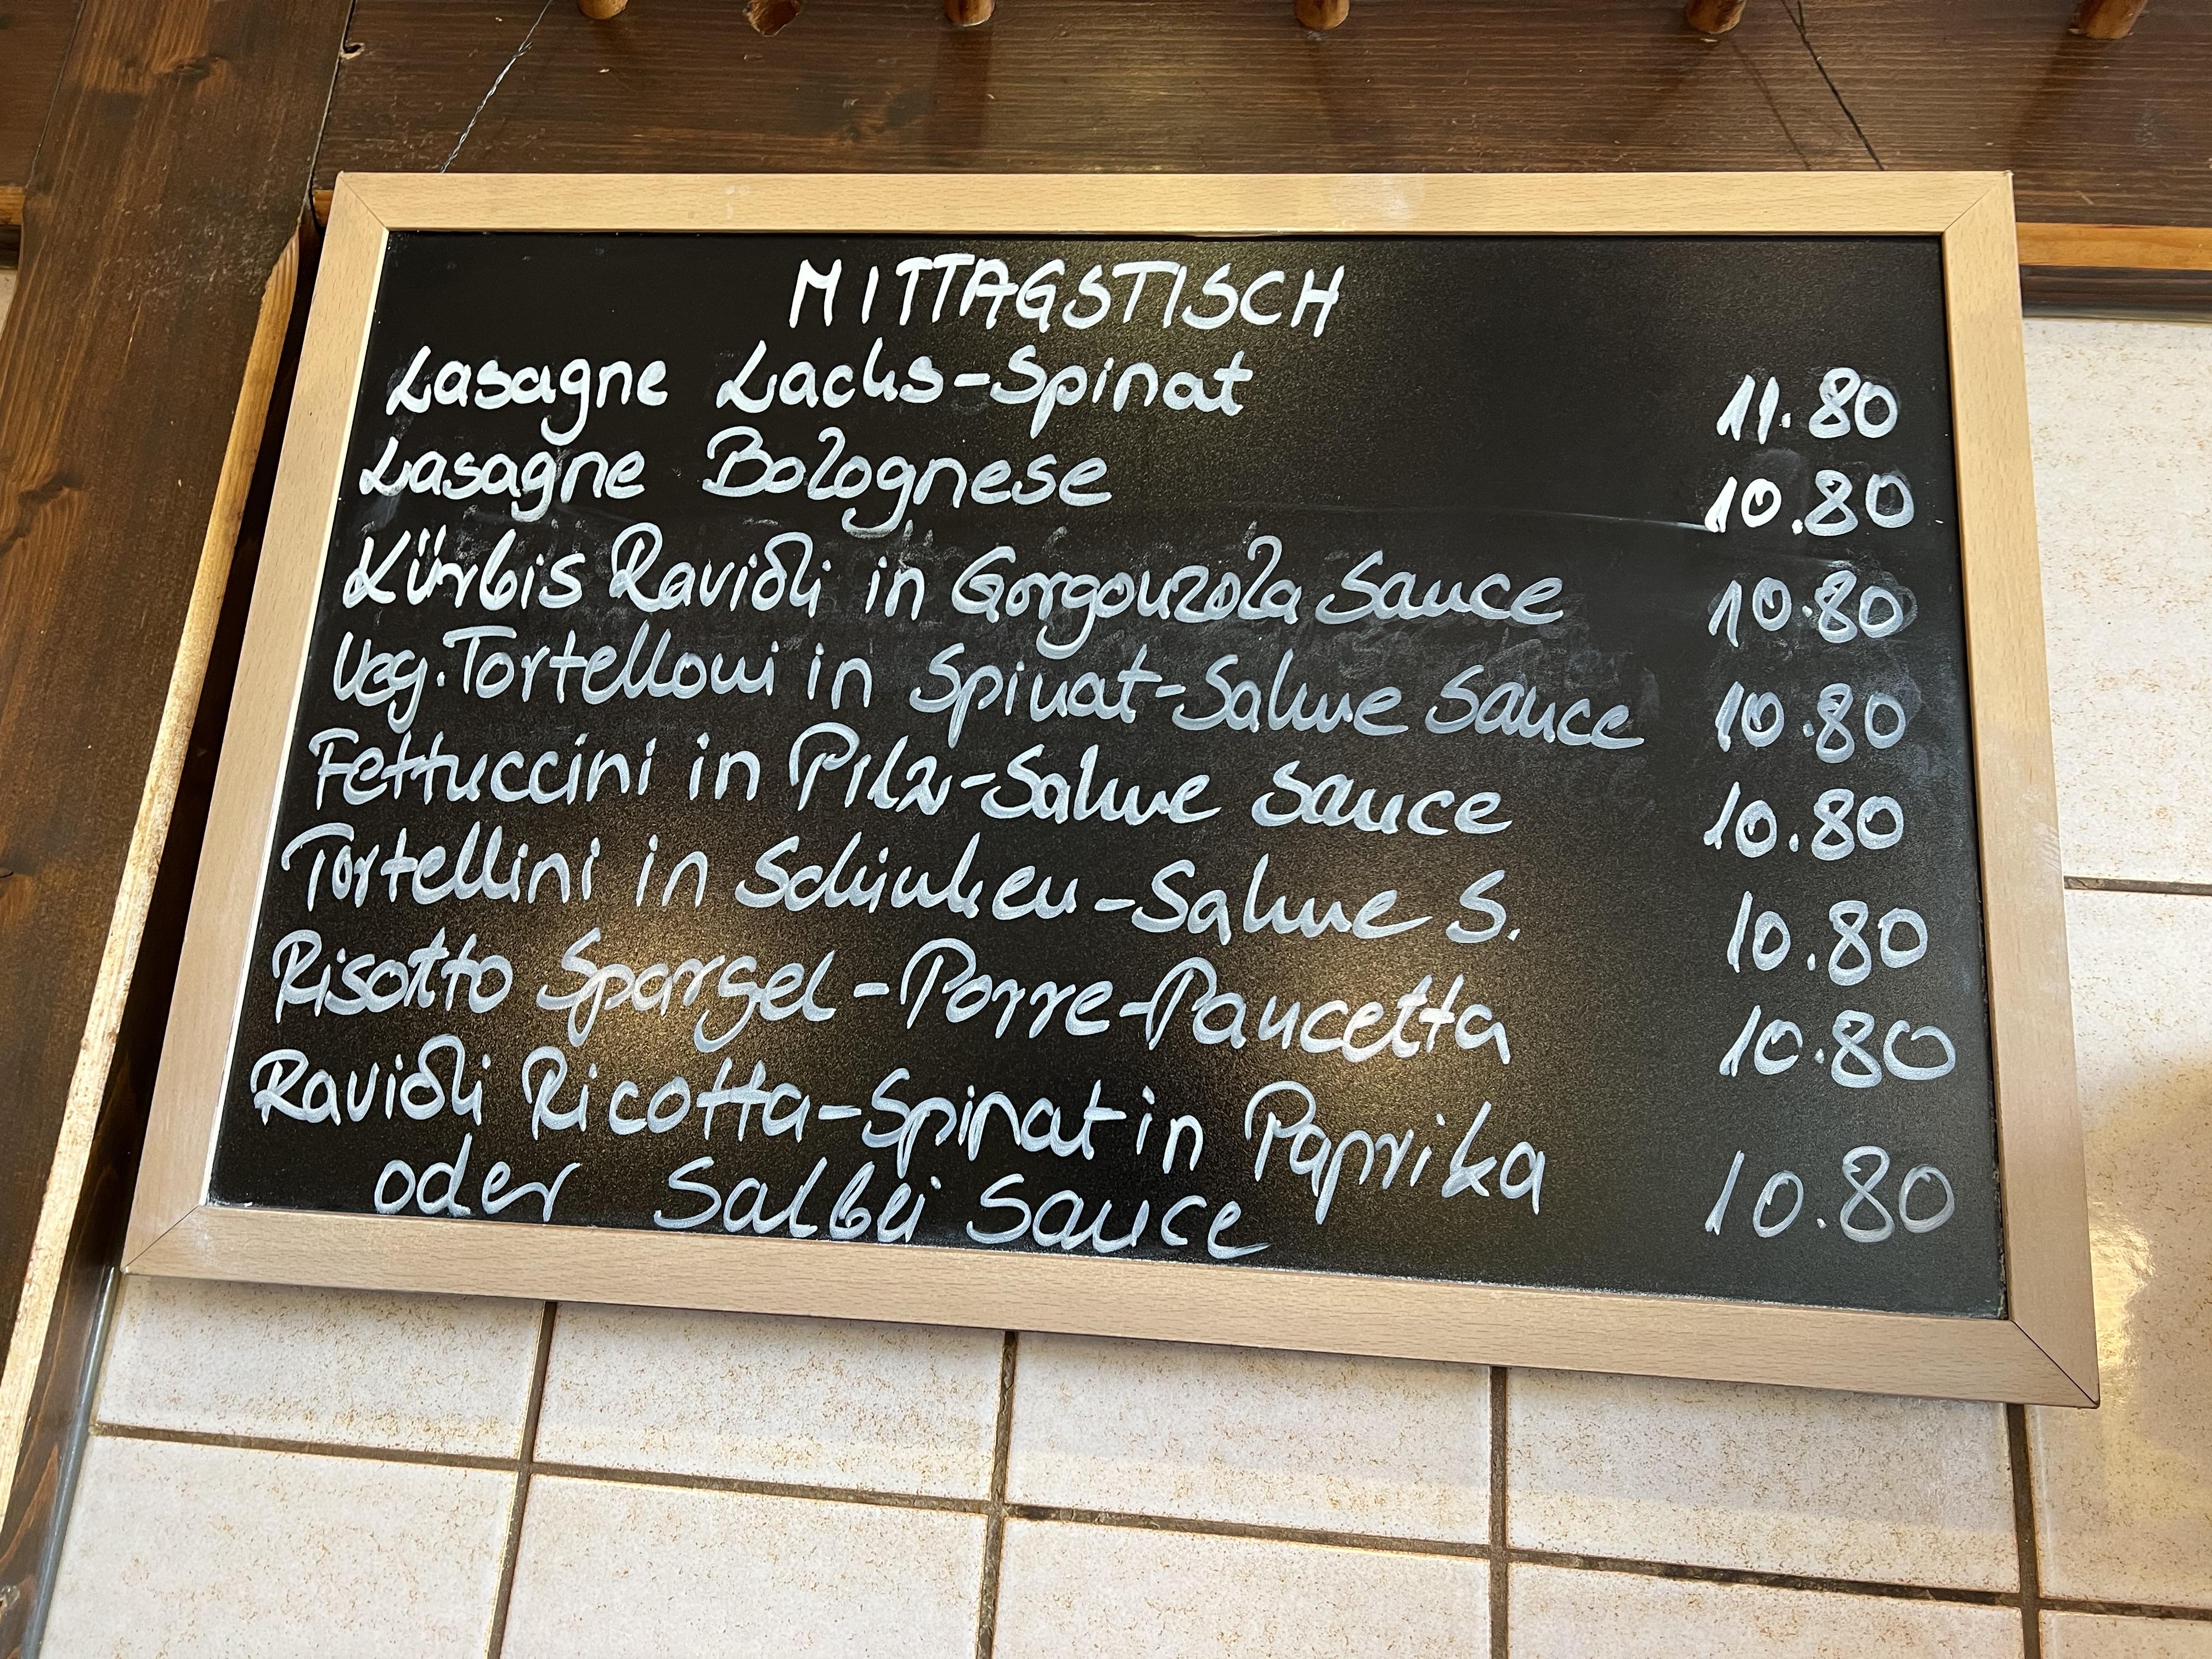 MITTAGSTISCH
Lasagne Lachs-Spinat 11.80
Lasagne Bolognese 10.80
Kürbis Ravioli in Gorgonzola Sauce 10.80
Veg. Tortelloni in Spinat-Sahne Sauce 10.80
Fettuccini in Pilz-Sahne Sauce 10.80
Tortellini in Schinken-Sahne S. 10.80
Risotto Spargel-Porre-Pancetta 10.80
Ravioli Ricotta-Spinat in Paprika
oder Salbei Sauce 10.80